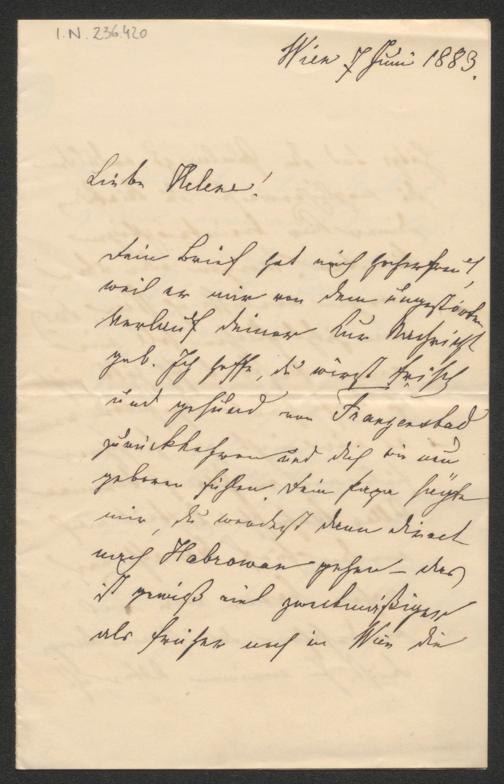 I.N. 236.420
Wien 7 Juni 1883.
Liebe Helene!
Dein Brief hat mich sehr erfreut,
weil er mir von dem ungestörten
Verlauf deiner Kur Nachricht
gab. Ich hoffe, du wirst frisch
und gesund von Franzensbad
zurückkehren und dich wie neu
geboren fühlen. Dein Papa sagte
mir, du werdest dann direct
nach Habrowan gehen – das
ist gewiß viel zweckmäßiger
als früher noch in Wien die